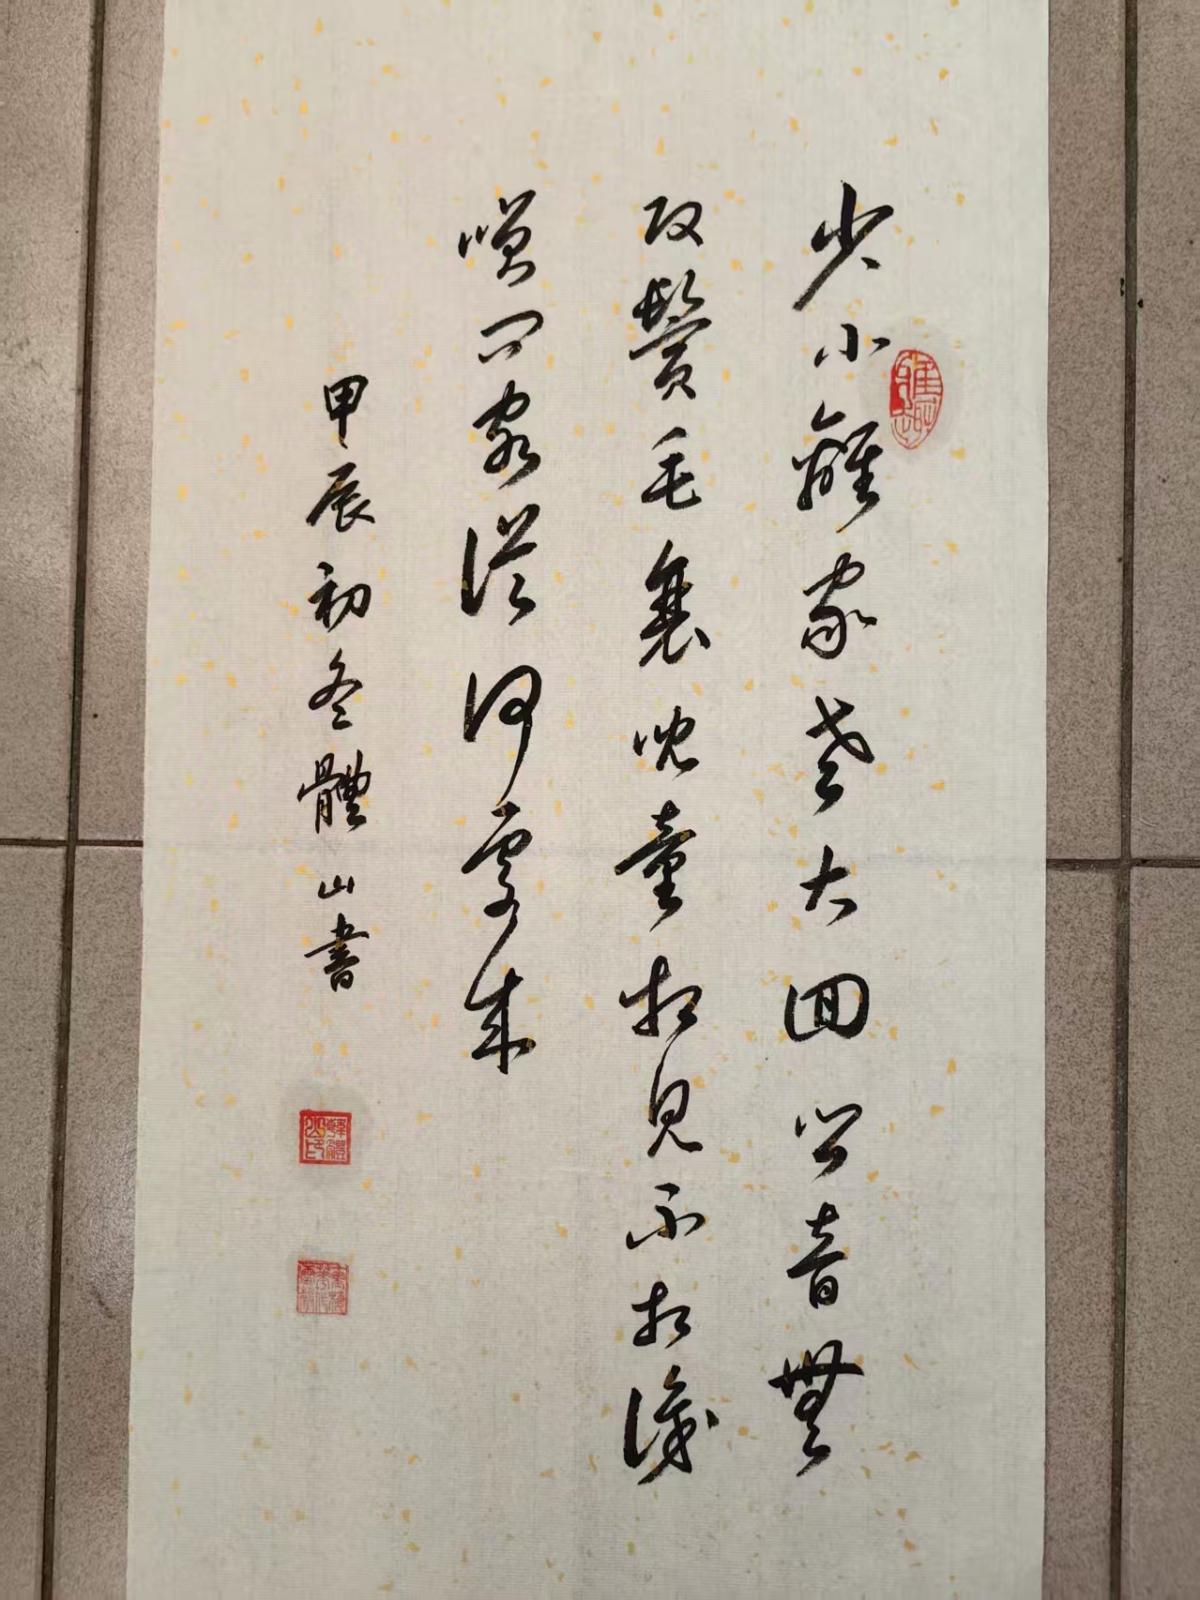 少小離家老大回鄉音無
改鬢毛衰兒童相見不相識
笑問客從何處来
甲辰初冬體山書